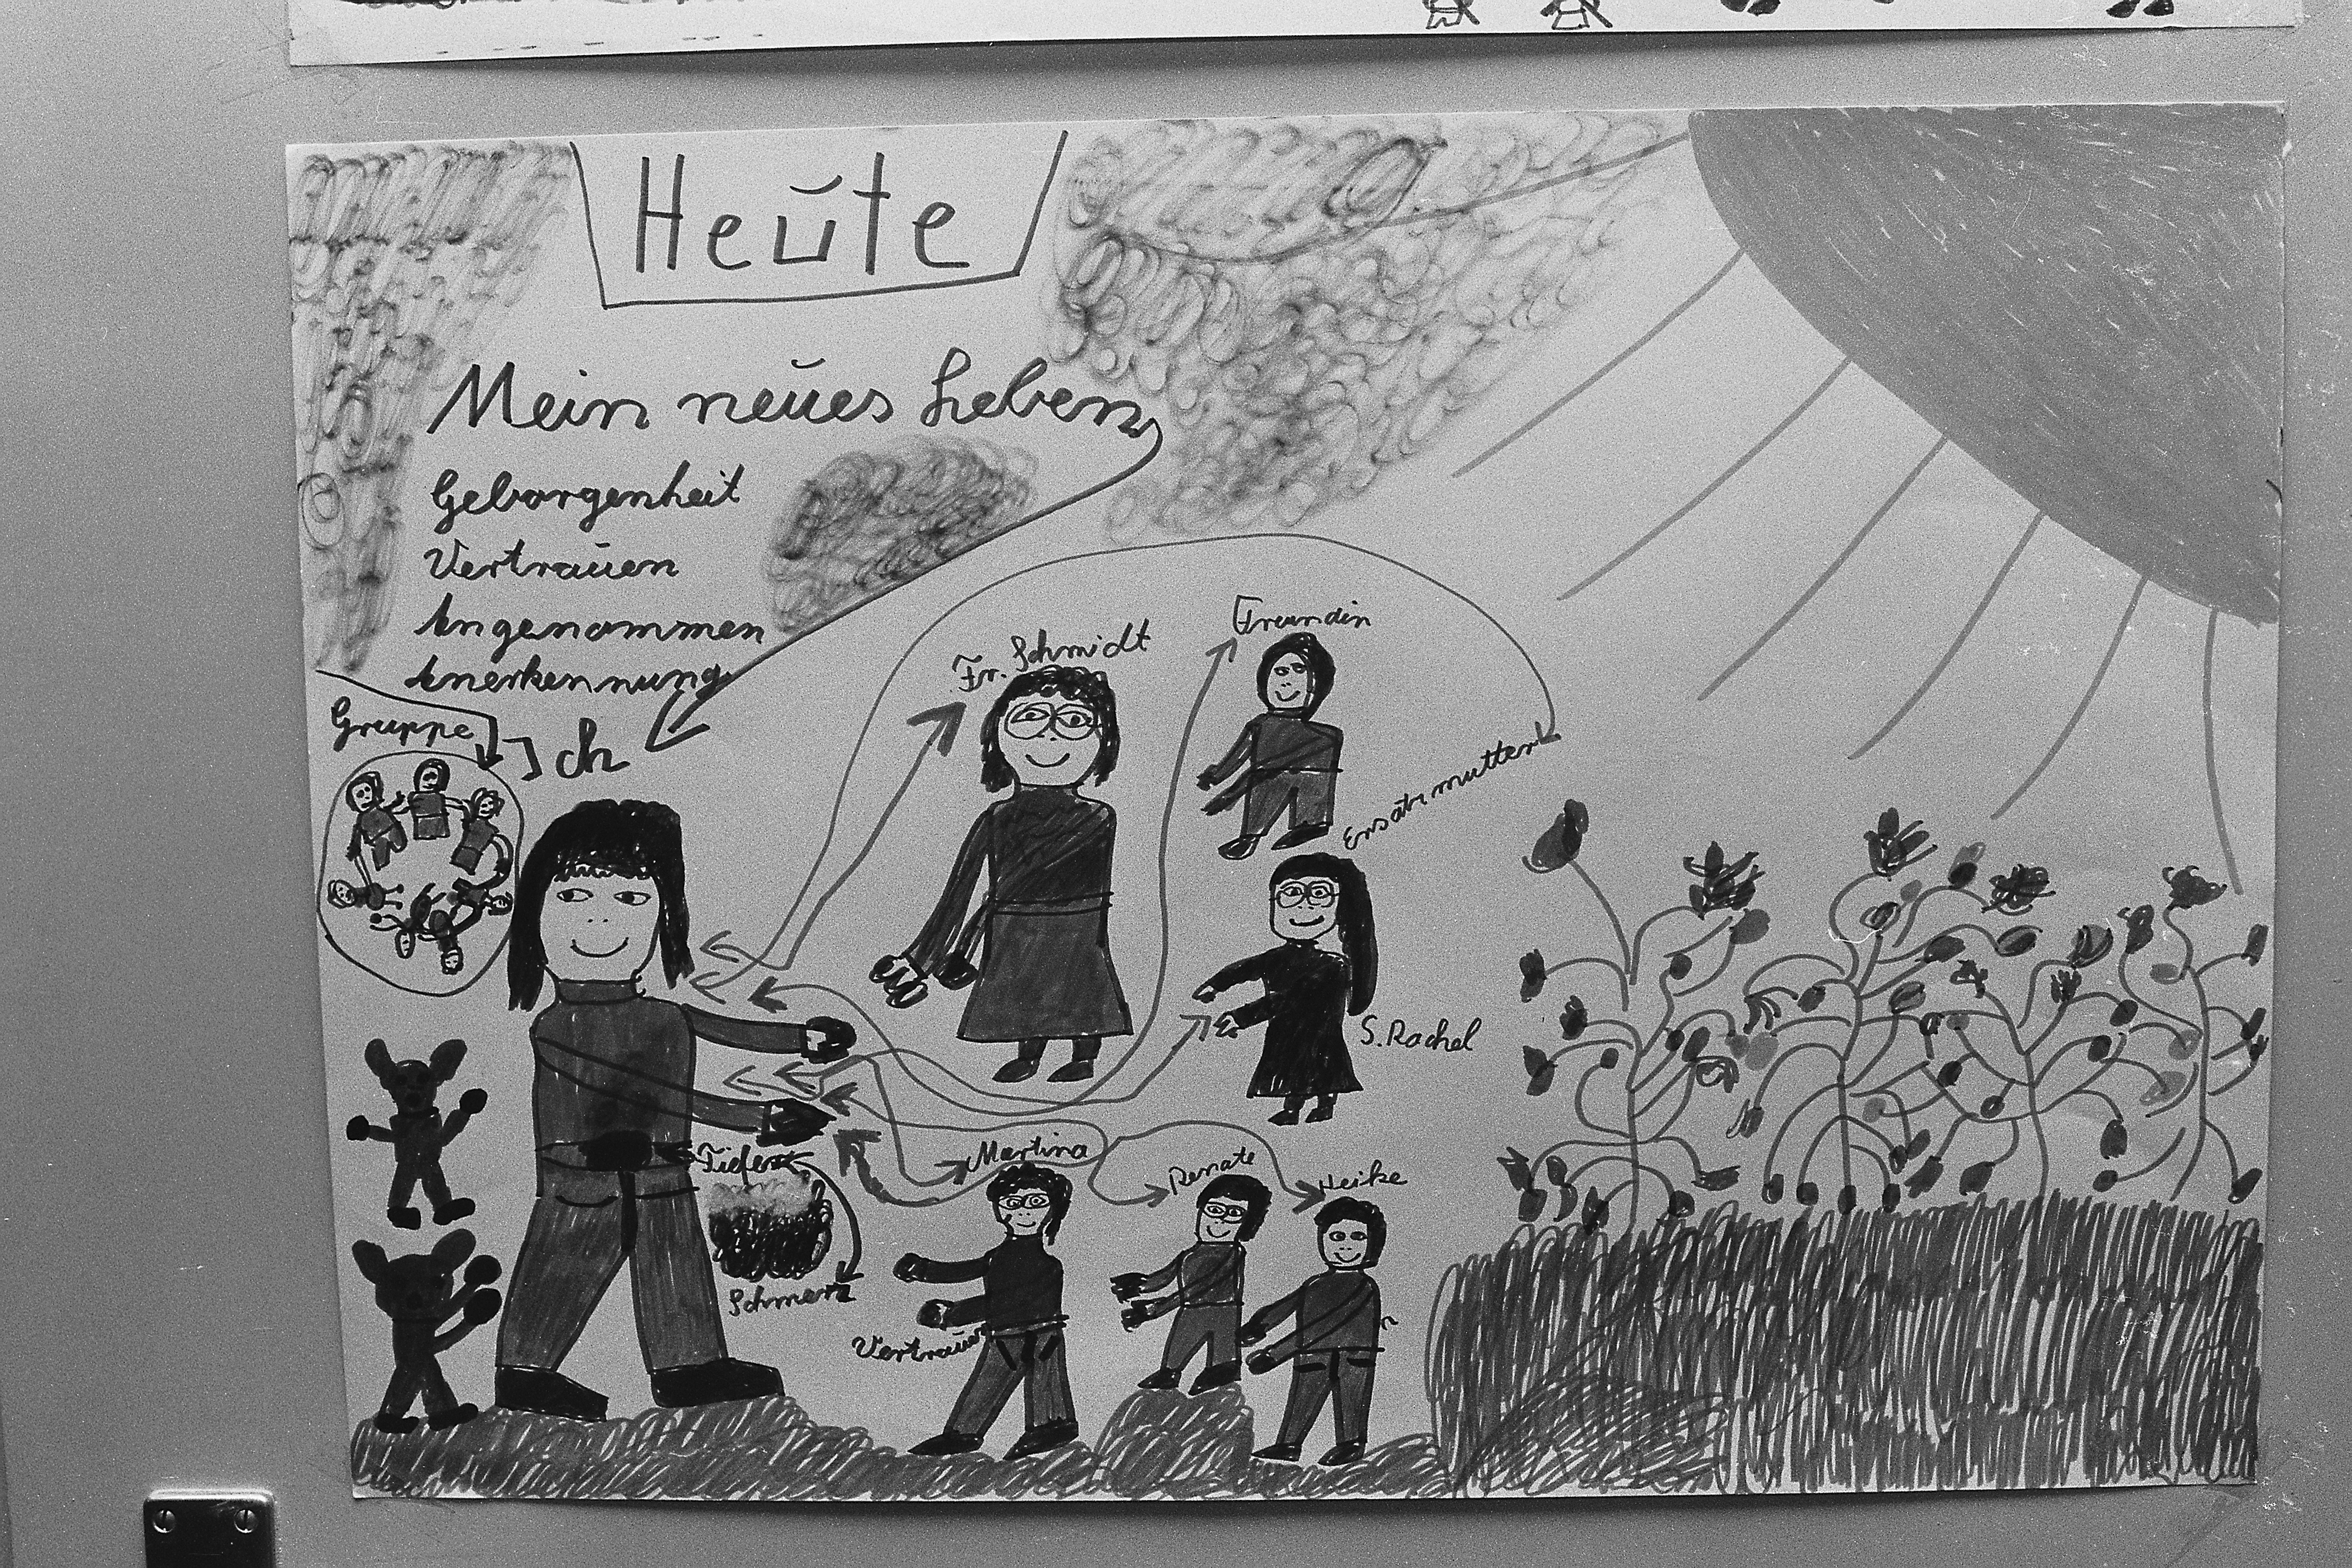 Heute
Mein neues Leben
Geborgenheit
Vertrauen
Angenommen
Anerkennung
Gruppe
Ich
Fr. Schmidt
Freundin
Ersatzmutter
S. Rachel
Tiefer
Schmerz
Martina
Renate
Heike
Vertrauen